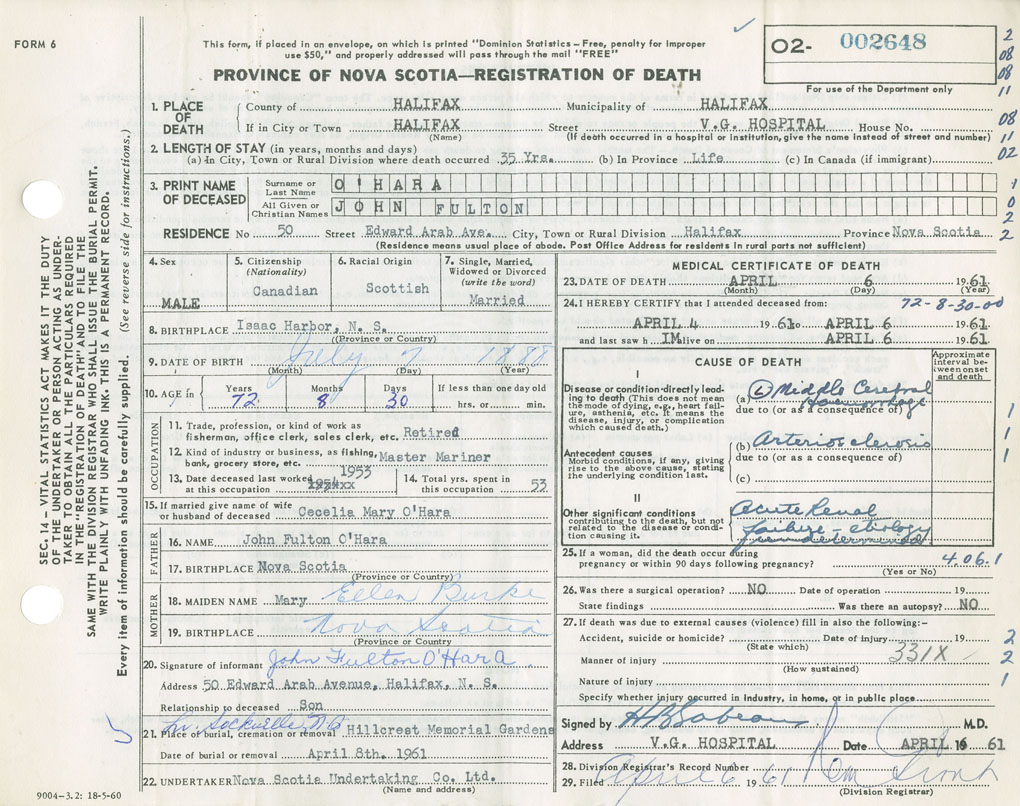 FORM 6
This form, if placed in an envelope, on which is printed "Dominion Statistics – Free, penalty for improper
use $50," and properly addressed will pass through the mail "FREE"
PROVINCE OF NOVA SCOTIA—REGISTRATION OF DEATH
O2- 002648
For use of the Department only
2
08
08
11
08
11
02
1
0
2
2
1. PLACE OF DEATH
County of HALIFAX Municipality of HALIFAX
If in City or Town HALIFAX Street V.G. HOSPITAL House No.
(Name) (If death occurred in a hospital or institution, give the name instead of street and number)
2. LENGTH OF STAY (in years, months and days)
(a) In City, Town or Rural Division where death occurred 35 Yrs. (b) In Province Life (c) In Canada (if immigrant)
3. PRINT NAME OF DECEASED
Surname or Last Name O'HARA
All Given or Christian Names JOHN FULTON
RESIDENCE No 50 Street Edward Arab Ave. City, Town or Rural Division Halifax Province Nova Scotia
(Residence means usual place of abode. Post Office Address for residents in rural parts not sufficient)
SEC. 14 – VITAL STATISTICS ACT MAKES IT THE DUTY
OF THE UNDERTAKER OR PERSON ACTING AS UNDER-
TAKER TO OBTAIN ALL THE PARTICULARS REQUIRED
IN THE "REGISTRATION OF DEATH" AND TO FILE THE
SAME WITH THE DIVISION REGISTRAR WHO SHALL ISSUE THE BURIAL PERMIT.
WRITE PLAINLY WITH UNFADING INK. THIS IS A PERMANENT RECORD.
Every item of information should be carefully supplied. (See reverse side for instructions.)
4. Sex
MALE
5. Citizenship
(Nationality)
Canadian
6. Racial Origin
Scottish
7. Single, Married,
Widowed or Divorced
(write the word)
Married
8. BIRTHPLACE Isaac Harbor, N. S.
(Province or Country)
9. DATE OF BIRTH July 7 1888
(Month) (Day) (Year)
10. AGE in Years Months Days If less than one day old
72 8 30 hrs. or min.
OCCUPATION
11. Trade, profession, or kind of work as
fisherman, office clerk, sales clerk, etc. Retired
12. Kind of industry or business, as fishing,
bank, grocery store, etc. Master Mariner
13. Date deceased last worked
at this occupation 1953
14. Total yrs. spent in
this occupation 53
15. If married give name of wife
or husband of deceased Cecelia Mary O'Hara
FATHER
16. NAME John Fulton O'Hara
17. BIRTHPLACE Nova Scotia
(Province or Country)
MOTHER
18. MAIDEN NAME Mary Ellen Burke
19. BIRTHPLACE Nova Scotia
(Province or Country)
20. Signature of informant John Fulton O'Hara
Address 50 Edward Arab Avenue, Halifax, N. S.
Relationship to deceased Son
Lr. Sackville N.S.
21. Place of burial, cremation or removal Hillcrest Memorial Gardens
Date of burial or removal April 8th. 1961
22. UNDERTAKER Nova Scotia Undertaking Co. Ltd.
(Name and address)
9004–3.2: 18-5-60
MEDICAL CERTIFICATE OF DEATH
23. DATE OF DEATH APRIL 6 1961
(Month) (Day) (Year)
24. I HEREBY CERTIFY that I attended deceased from: 72-8-30-00
APRIL 4 1961 to APRIL 6 1961
and last saw h IM alive on APRIL 6 1961
CAUSE OF DEATH
Approximate
interval be-
tween onset
and death
I
Disease or condition directly lead-
ing to death (This does not mean
the mode of dying, e.g., heart fail-
ure, asthenia, etc. It means the
disease, injury, or complication
which caused death.)
(a) (L) Middle Cerebral
haemorrhage
due to (or as a consequence of)
Antecedent causes
Morbid conditions, if any, giving
rise to the above cause, stating
the underlying condition last.
(b) Arteriosclerosis
due to (or as a consequence of)
(c)
1
1
1
II
Other significant conditions
contributing to the death, but not
related to the disease or condi-
tion causing it.
Acute Renal
failure – etiology
undetermined
25. If a woman, did the death occur during
pregnancy or within 90 days following pregnancy?
(Yes or No)
4.06.1
26. Was there a surgical operation? NO Date of operation 19
State findings Was there an autopsy? NO
27. If death was due to external causes (violence) fill in also the following:–
Accident, suicide or homicide? Date of injury 19
(State which)
Manner of injury 331X
(How sustained)
Nature of injury
Specify whether injury occurred in industry, in home, or in public place
2
2
1
Signed by M.D.
Address V.G. HOSPITAL Date APRIL 6 61
28. Division Registrar's Record Number
29. Filed April 6 1961
(Division Registrar)